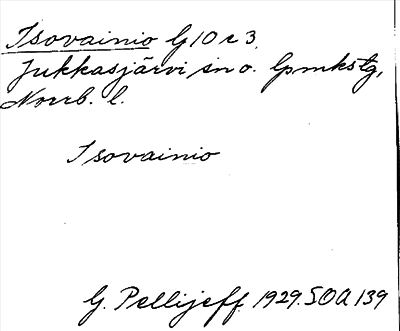 Isovainio G 10 r 3.
Jukkasjärvi sn o. lpmkstg,
Norrb. l.
Isovainio
G. Pellijeff. 1929. SOA 139